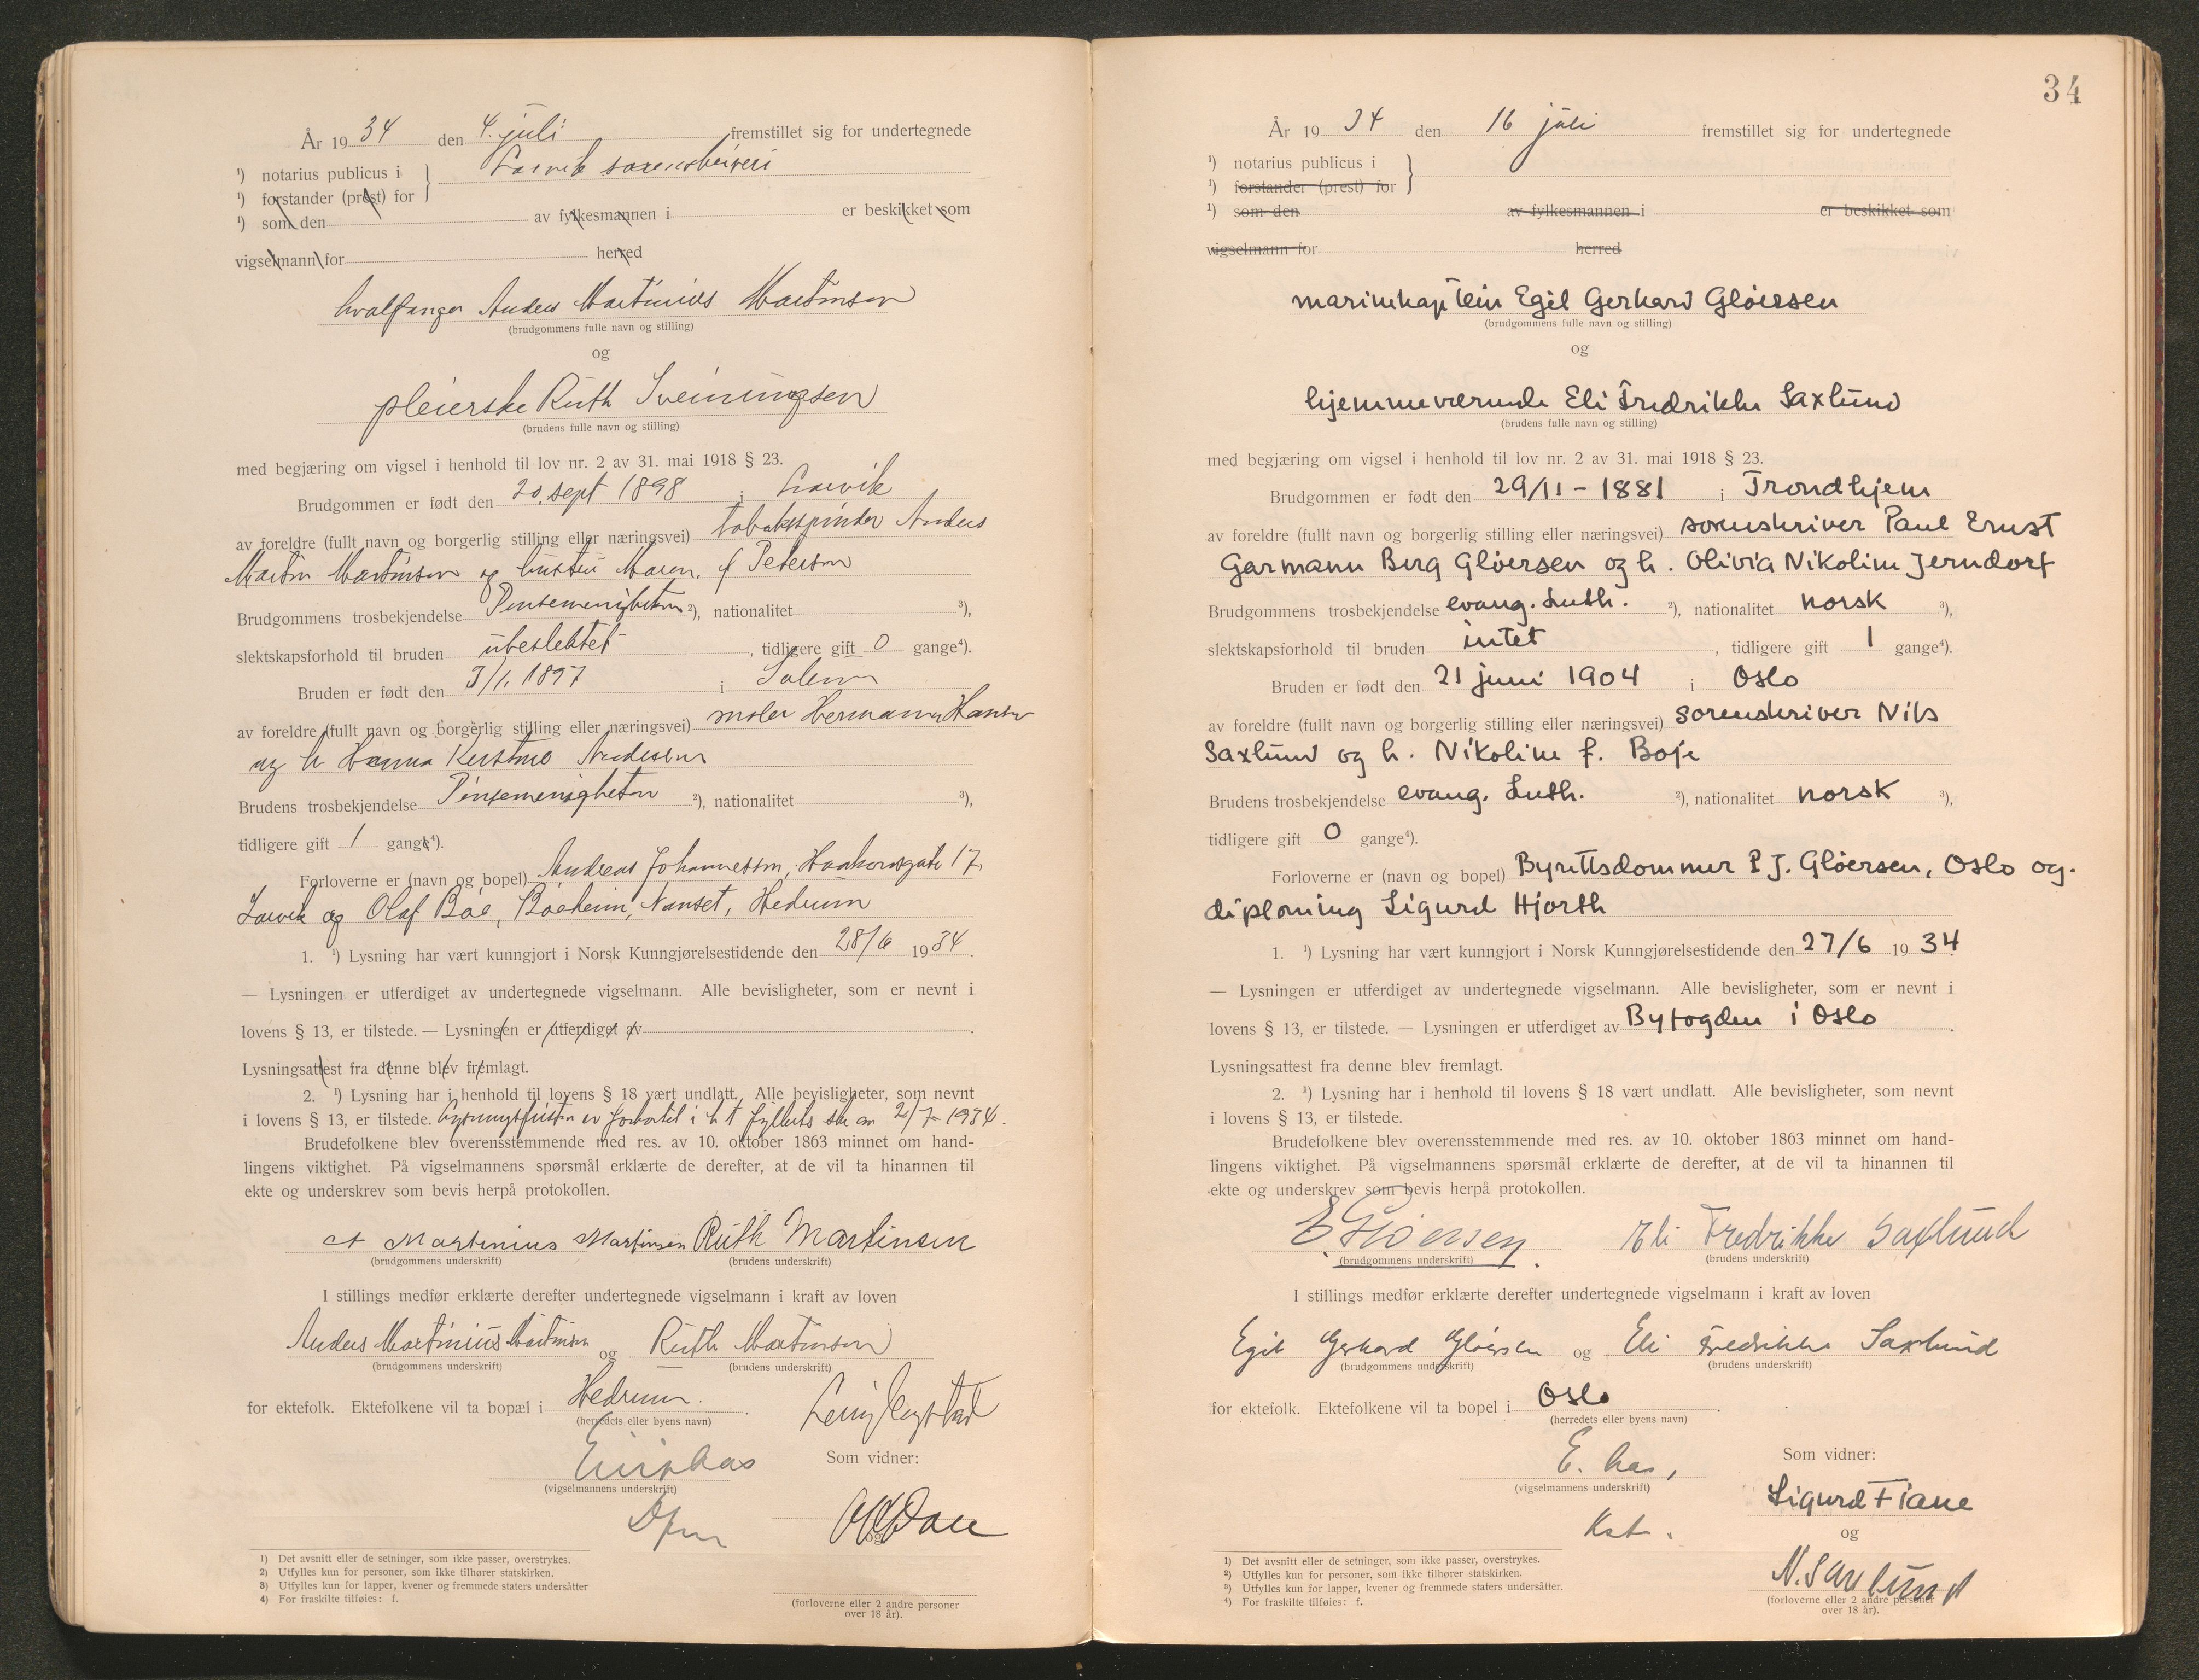 År 1934 den 4. juli fremstillet sig for undertegnede
¹) notarius publicus i } Larvik sorenskriveri
¹) forstander (prest) for
¹) som den av fylkesmannen i er beskikket som
vigselmann for herred
hvalfanger Anders Martinius Martinsen
(brudgommens fulle navn og stilling)
og
pleierske Ruth Sveinungsen
(brudens fulle navn og stilling)
med begjæring om vigsel i henhold til lov nr. 2 av 31. mai 1918 § 23.
Brudgommen er født den 20. sept 1898 i Larvik
av foreldre (fullt navn og borgerlig stilling eller næringsvei) tobakspinder Anders
Martin Martinsen og hustru Maren, f Petersen
Brudgommens trosbekjendelse Pinsemenigheten ²), nationalitet ³),
slektskapsforhold til bruden ubeslektet, tidligere gift 0 gange⁴).
Bruden er født den 3/1 1897 i Solum
av foreldre (fullt navn og borgerlig stilling eller næringsvei) maler Hermann Hansen
og h Hanna Kirstine Andersen
Brudens trosbekjendelse Pinsemenigheten ²), nationalitet ³),
tidligere gift 1 gange⁴).
Forloverne er (navn og bopel) Andreas Johannessen, Haakonsgate 17,
Larvik og Olaf Bøe, Bøeheim, Nanset, Hedrum
1. ¹) Lysning har vært kunngjort i Norsk Kunngjørelsestidende den 28/6 1934.
— Lysningen er utferdiget av undertegnede vigselmann. Alle bevisligheter, som er nevnt i
lovens § 13, er tilstede. — Lysningen er utferdiget av .
Lysningsattest fra denne blev fremlagt.
2. ¹) Lysning har i henhold til lovens § 18 vært undlatt. Alle bevisligheter, som nevnt
i lovens § 13, er tilstede. er i h t fylkets skr av 2/7-1934.
Brudefolkene blev overensstemmende med res. av 10. oktober 1863 minnet om hand-
lingens viktighet. På vigselmannens spørsmål erklærte de derefter, at de vil ta hinannen til
ekte og underskrev som bevis herpå protokollen.
A Martinius Martinsen Ruth Martinsen
(brudgommens underskrift) (brudens underskrift)
I stillings medfør erklærte derefter undertegnede vigselmann i kraft av loven
Anders Martinius Martinsen og Ruth Martinsen
(brudgommens underskrift) (brudens underskrift)
for ektefolk. Ektefolkene vil ta bopæl i Hedrum.
(herredets eller byens navn)
Som vidner:
(vigselmannens underskrift)
og
1) Det avsnitt eller de setninger, som ikke passer, overstrykes.
2) Utfylles kun for personer, som ikke tilhører statskirken.
3) Utfylles kun for lapper, kvener og fremmede staters undersåtter
4) For fraskilte tilføies: f.
(forloverne eller 2 andre personer
over 18 år).
34
År 1934 den 16 juli fremstillet sig for undertegnede
¹) notarius publicus i }
¹) forstander (prest) for
¹) som den av fylkesmannen i er beskikket som
vigselmann for herred
marinekaptein Egil Gerhard Gløersen
(brudgommens fulle navn og stilling)
og
hjemmeværende Eli Fredrikke Saxlund
(brudens fulle navn og stilling)
med begjæring om vigsel i henhold til lov nr. 2 av 31. mai 1918 § 23.
Brudgommen er født den 29/11-1881 i Trondhjem
av foreldre (fullt navn og borgerlig stilling eller næringsvei) sorenskriver Paul Ernst
Garmann Berg Gløersen og h. Olivia Nikoline Jerndorf
Brudgommens trosbekjendelse evang. Luth. ²), nationalitet norsk ³),
slektskapsforhold til bruden intet, tidligere gift 1 gange⁴).
Bruden er født den 21 juni 1904 i Oslo
av foreldre (fullt navn og borgerlig stilling eller næringsvei) sorenskriver Nils
Saxlund og h. Nikoline f. Boje
Brudens trosbekjendelse evang. Luth. ²), nationalitet norsk ³),
tidligere gift 0 gange⁴).
Forloverne er (navn og bopel) Byrettsdommer P J. Gløersen, Oslo og
diploming Sigurd Hjorth
1. ¹) Lysning har vært kunngjort i Norsk Kunngjørelsestidende den 27/6 1934.
— Lysningen er utferdiget av undertegnede vigselmann. Alle bevisligheter, som er nevnt i
lovens § 13, er tilstede. — Lysningen er utferdiget av Byfogden i Oslo.
Lysningsattest fra denne blev fremlagt.
2. ¹) Lysning har i henhold til lovens § 18 vært undlatt. Alle bevisligheter, som nevnt
i lovens § 13, er tilstede.
Brudefolkene blev overensstemmende med res. av 10. oktober 1863 minnet om hand-
lingens viktighet. På vigselmannens spørsmål erklærte de derefter, at de vil ta hinannen til
ekte og underskrev som bevis herpå protokollen.
E. Gløersen. Eli Fredrikke Saxlund
(brudgommens underskrift) (brudens underskrift)
I stillings medfør erklærte derefter undertegnede vigselmann i kraft av loven
Egil Gerhard Gløersen og Eli Fredrikke Saxlund
(brudgommens underskrift) (brudens underskrift)
for ektefolk. Ektefolkene vil ta bopel i Oslo.
(herredets eller byens navn)
Som vidner:
(vigselmannens underskrift)
Sigurd Fiane
Kst. og
N. Saxlund
1) Det avsnitt eller de setninger, som ikke passer, overstrykes.
2) Utfylles kun for personer, som ikke tilhører statskirken.
3) Utfylles kun for lapper, kvener og fremmede staters undersåtter.
4) For fraskilte tilføies: f.
(forloverne eller 2 andre personer
over 18 år).